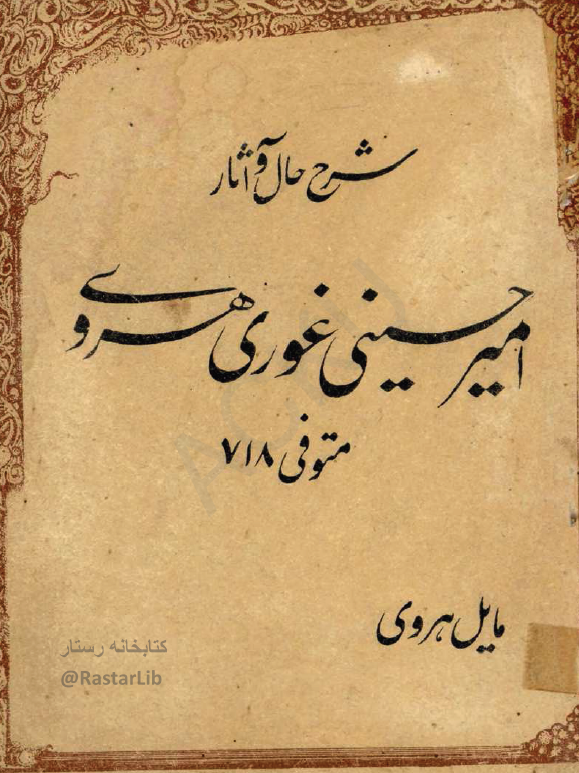 شرح حال و آثار
امیر حسینی غوری هروی
متوفی ۷۱۸
مایل هروی
کتابخانه رستار
@RastarLib